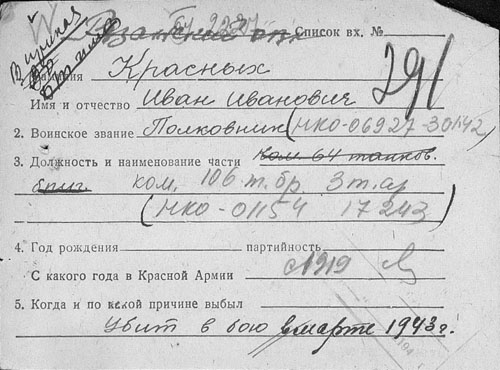 Список вх. №
Фамилия Красных 291
Имя и отчество Иван Иванович
2. Воинское звание Полковник (НКО-06927-30142)
3. Должность и наименование части ком. 64 танков.
бриг. ком. 106 т. бр. 3 т. ар
(НКО-01154 17243)
4. Год рождения партийность
С какого года в Красной Армии с 1919
5. Когда и по какой причине выбыл
Убит в бою в марте 1943 г.